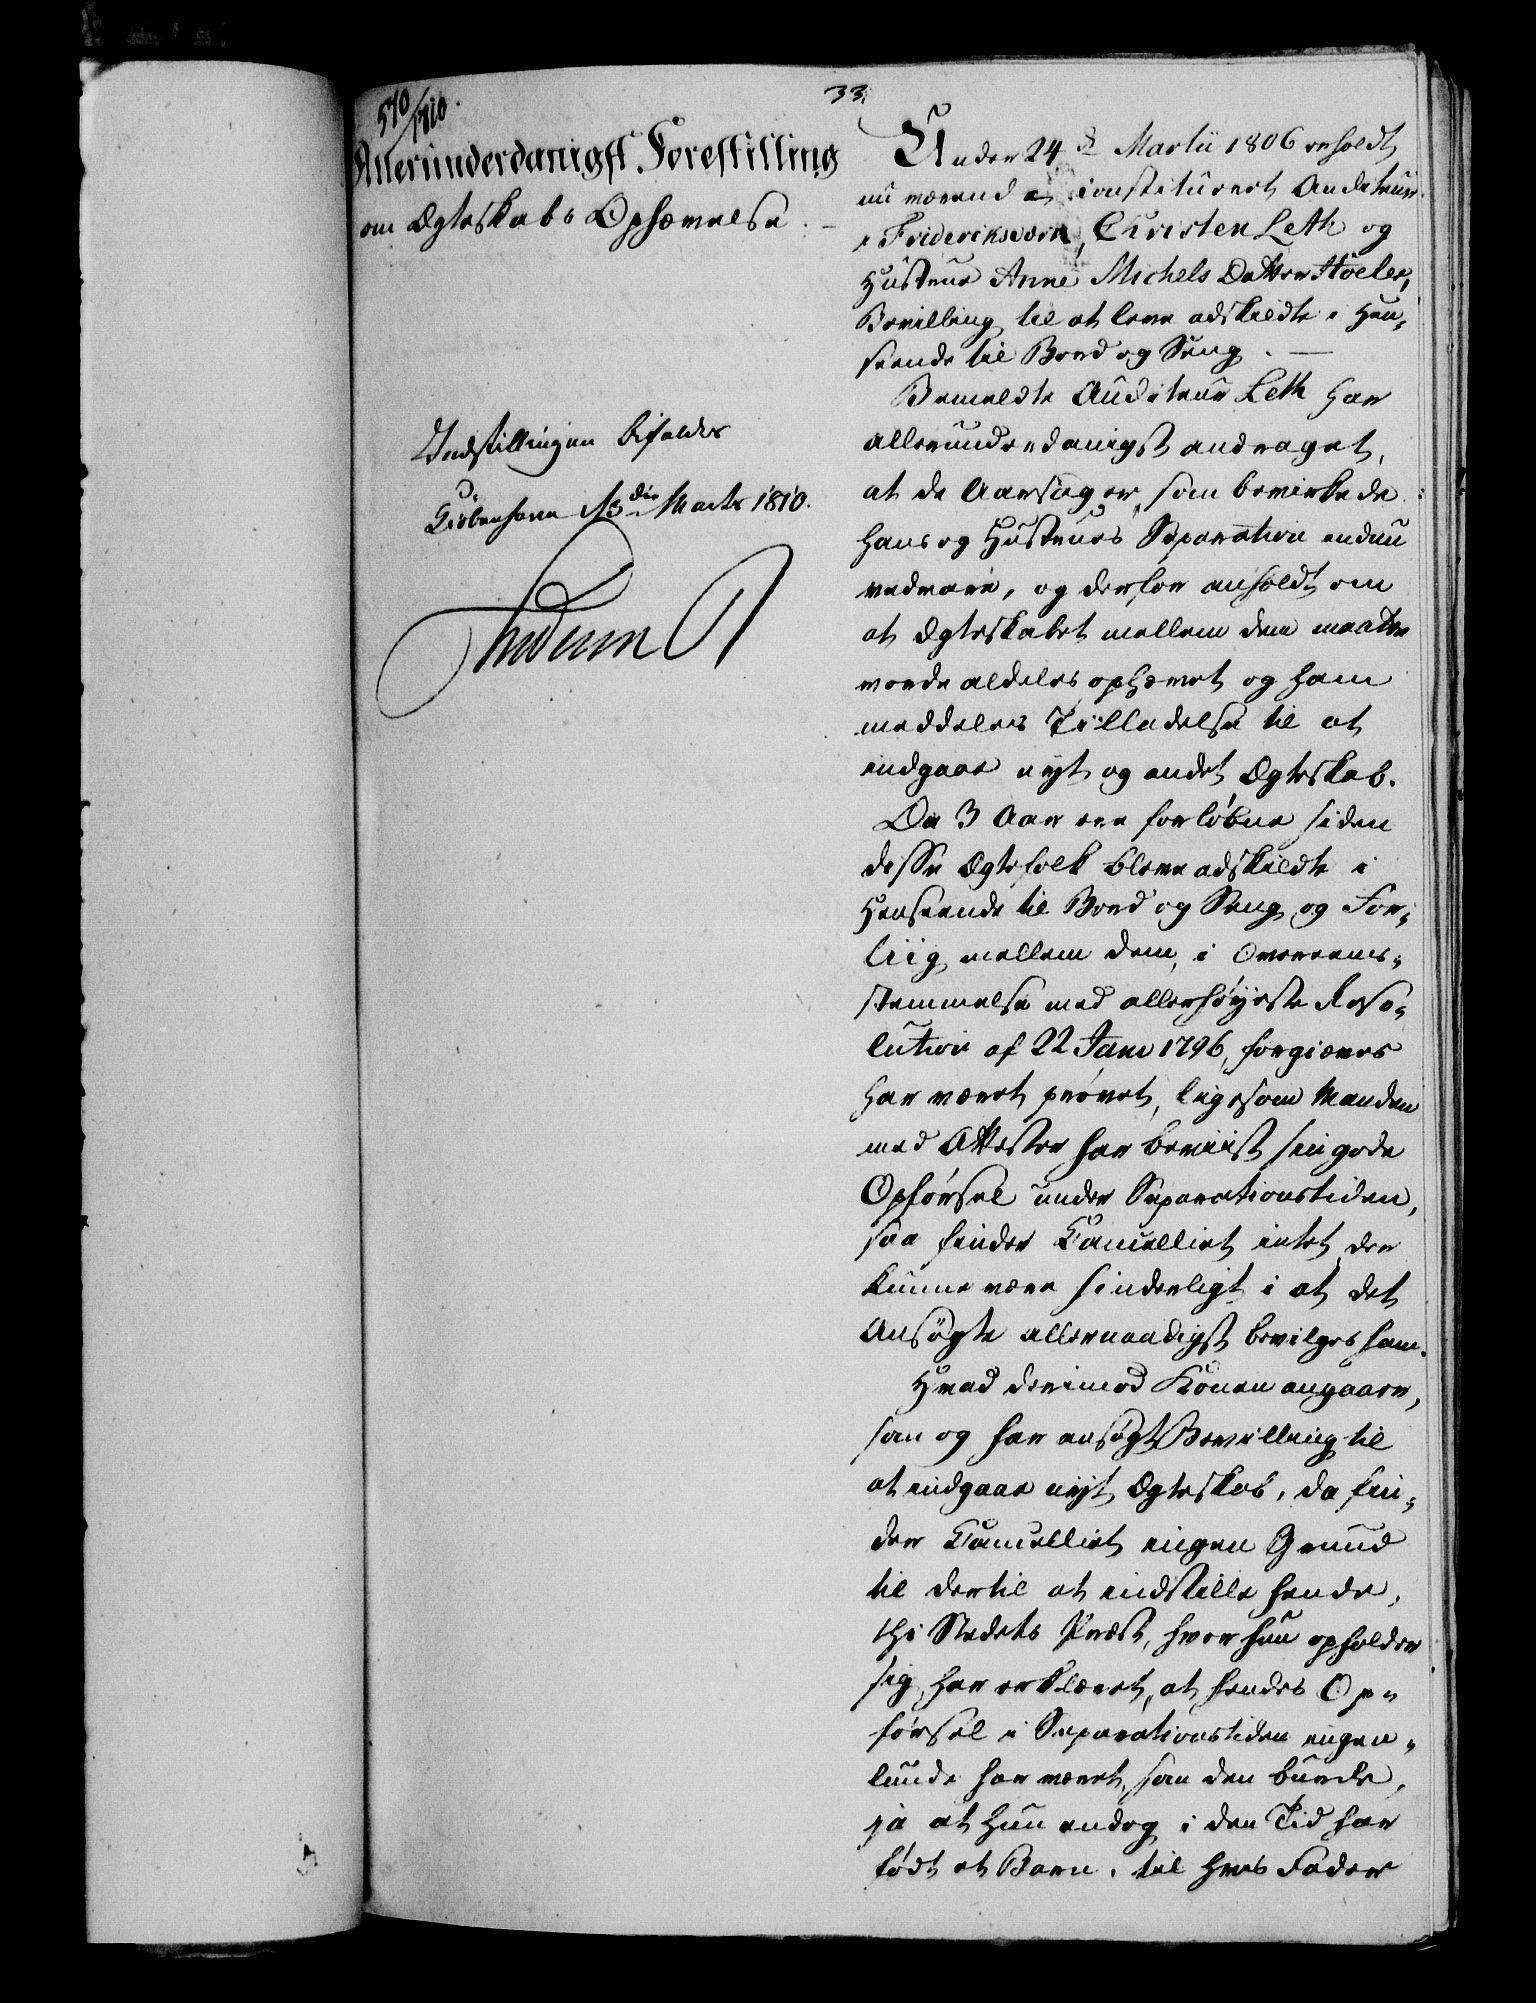 33.
570/1810.
Allerunderdanigst Forestilling
om Ægteskabs Ophævelse. –
Indstillingen bifaldes
Kiöbenhavn d 13die Marts 1810.
Frederik R
Under 24d Martii 1806 erholdt
nu værende constitueret Auditeur
i Frideriksværn, Christen Leth og
Hustrue Anne Michels Datter Höeler,
Bevilling til at leve adskildte i Hen-
seende til Bord og Seng. —
Bemeldte Auditeur Leth har
allerunderdanigst andraget,
at de Aarsager, som bevirkede
hans og Hustrues Separation endnu
vedvare, og derfor anholdt om
at Ægteskabet mellem dem maatte
vorde aldeles ophævet og ham
meddeles Tilladelse til at
indgaae nyt og andet Ægteskab.
Da 3 Aar ere forløbne siden
disse Ægtefolk bleve adskildte i
Henseende til Bord og Seng og For-
liig mellem dem, i Overeens-
stemmelse med allerhøyeste Reso-
lution af 22 Janv 1796, forgieves
har været prøvet, ligesom Manden
med Attester har beviist sin gode
Opførsel under Separationstiden,
saa finder Cancelliet intet der
kunne være hinderligt i at det
Ansøgte allernaadigst bevilges ham.
Hvad derimod Konen angaaer,
som og har ansøgt Bevilling til
at indgaae nyt Ægteskab, da fin-
der Cancelliet ingen Grund
til dertil at indstille hende,
thi Stedets Præst, hvor hun opholder
sig, har erklæret, at hendes Op-
førsel i Separationstiden ingen-
lunde har været, som den burde,
ja at hun endog i den Tid har
født et Barn, til hvis Fader